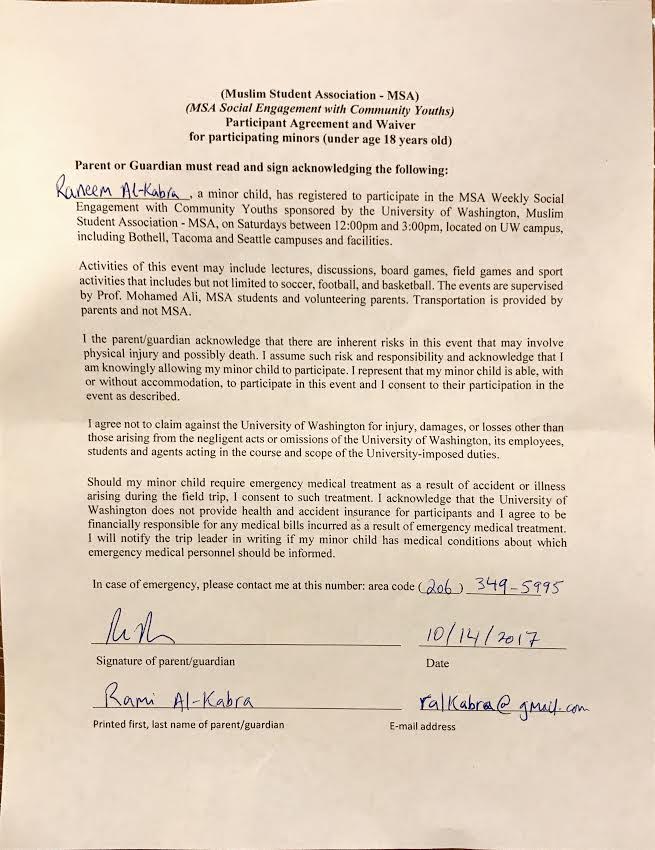 (Muslim Student Association - MSA)
(MSA Social Engagement with Community Youths)
Participant Agreement and Waiver
for participating minors (under age 18 years old)
Parent or Guardian must read and sign acknowledging the following:
Raneem Al-Kabra, a minor child, has registered to participate in the MSA Weekly Social
Engagement with Community Youths sponsored by the University of Washington, Muslim
Student Association - MSA, on Saturdays between 12:00pm and 3:00pm, located on UW campus,
including Bothell, Tacoma and Seattle campuses and facilities.
Activities of this event may include lectures, discussions, board games, field games and sport
activities that includes but not limited to soccer, football, and basketball. The events are supervised
by Prof. Mohamed Ali, MSA students and volunteering parents. Transportation is provided by
parents and not MSA.
I the parent/guardian acknowledge that there are inherent risks in this event that may involve
physical injury and possibly death. I assume such risk and responsibility and acknowledge that I
am knowingly allowing my minor child to participate. I represent that my minor child is able, with
or without accommodation, to participate in this event and I consent to their participation in the
event as described.
I agree not to claim against the University of Washington for injury, damages, or losses other than
those arising from the negligent acts or omissions of the University of Washington, its employees,
students and agents acting in the course and scope of the University-imposed duties.
Should my minor child require emergency medical treatment as a result of accident or illness
arising during the field trip, I consent to such treatment. I acknowledge that the University of
Washington does not provide health and accident insurance for participants and I agree to be
financially responsible for any medical bills incurred as a result of emergency medical treatment.
I will notify the trip leader in writing if my minor child has medical conditions about which
emergency medical personnel should be informed.
In case of emergency, please contact me at this number: area code (206) 349-5995
10/14/2017
Signature of parent/guardian Date
Rami Al-Kabra ralkabra@gmail.com
Printed first, last name of parent/guardian E-mail address